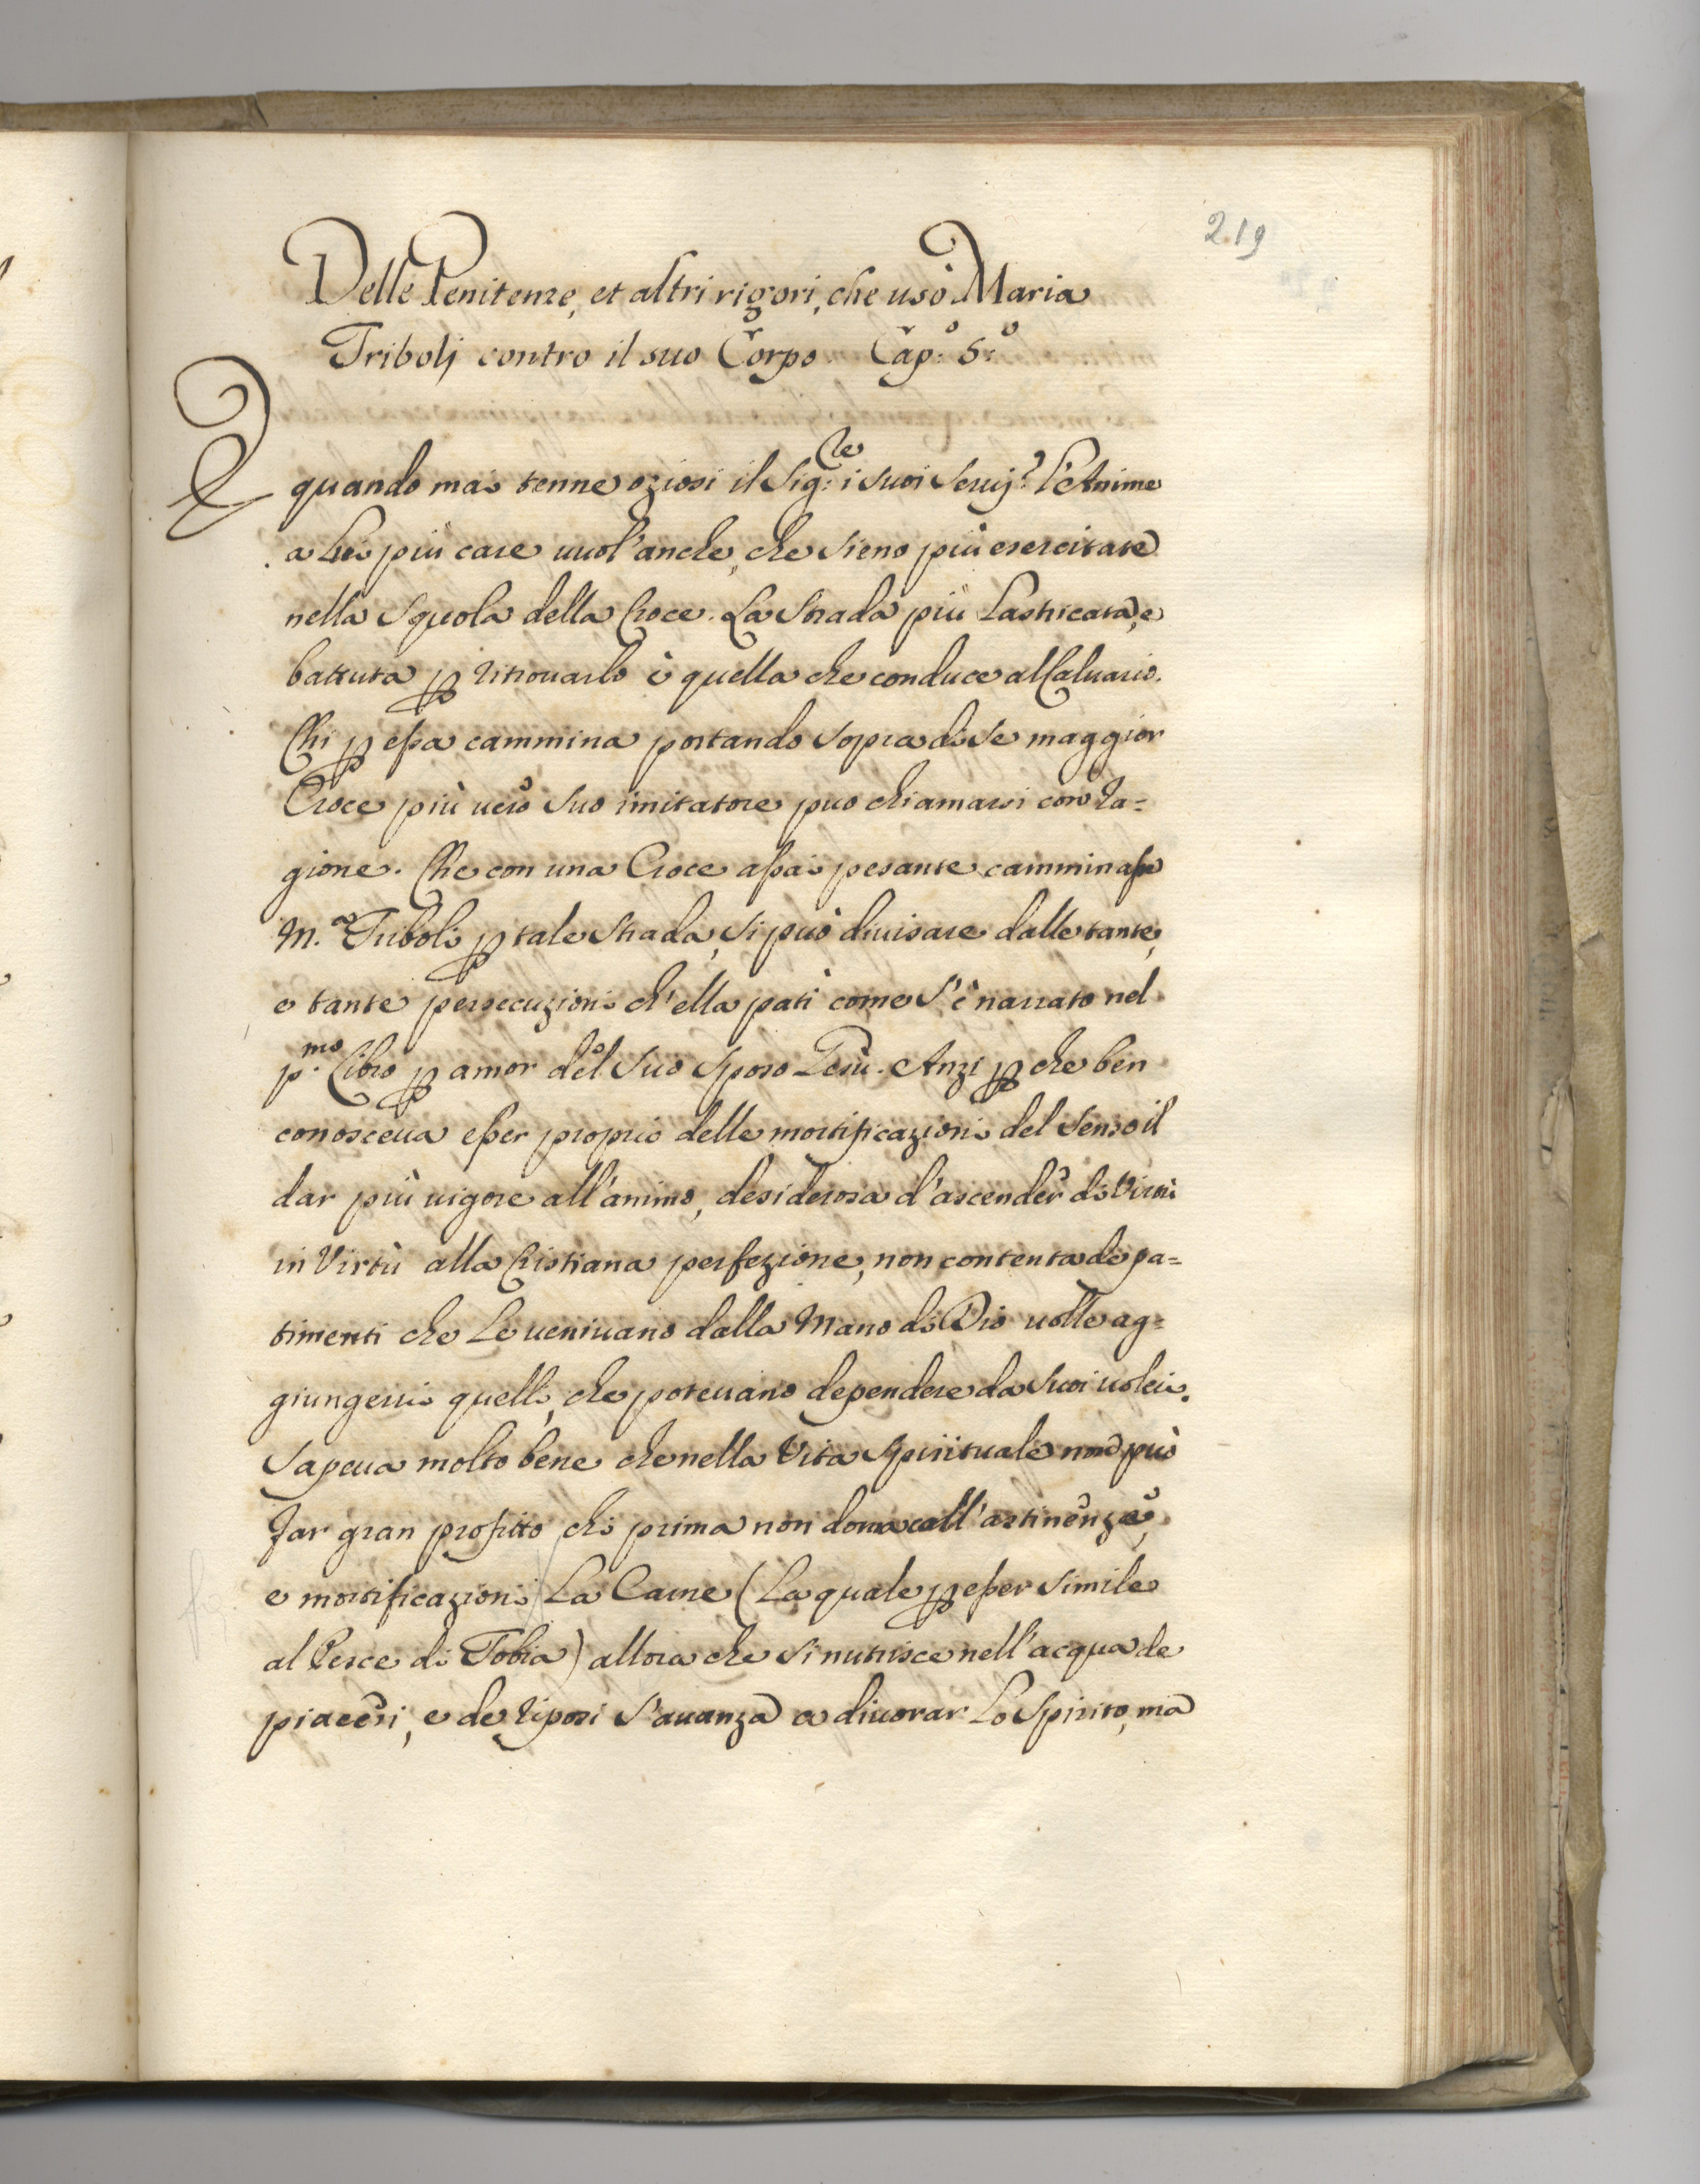 219
Delle Penitenze, et altri rigori, che usò Maria
Triboli contro il suo Corpo. Cap:º 5:º
E quando mai tenne oziosi il Sig:re i suoi Serui? L'Anime
a Lui più care uuol'anche, che sieno più esercitate
nella Squola della Croce. La Strada più Lastricata, e
battuta p ritrouarlo è quella che conduce al Caluario.
Chi p essa cammina portando sopra di se maggior
Croce più uero suo imitatore puo chiamarsi con ra=
gione. Che con una Croce assai pesante camminasse
M.a Triboli p tale Strada, si può diuisare dalle tante,
e tante persecuzioni ch'ella patì come s'è narrato nel
p.mo Libro p amor del suo Sposo Gesù. Anzi p che ben
conosceua esser proprio delle mortificazioni del Senso il
dar più uigore all'animo, desiderosa d'ascender di Virtù
in Virtù alla Cristiana perfezione, non contenta de pa=
timenti che Le ueniuano dalla Mano di Dio uolle ag=
giungerui quelli, che poteuano dependere da suoi uoleri.
Sapeua molto bene che nella Vita Spirituale non può
far gran profitto chi prima non doma coll'astinenze,
e mortificazioni La Carne (La quale p esser simile
al Pesce di Tobia) allora che si nutrisce nell'acqua de
piaceri, e de riposi s'auanza a diuorar Lo Spirito, ma